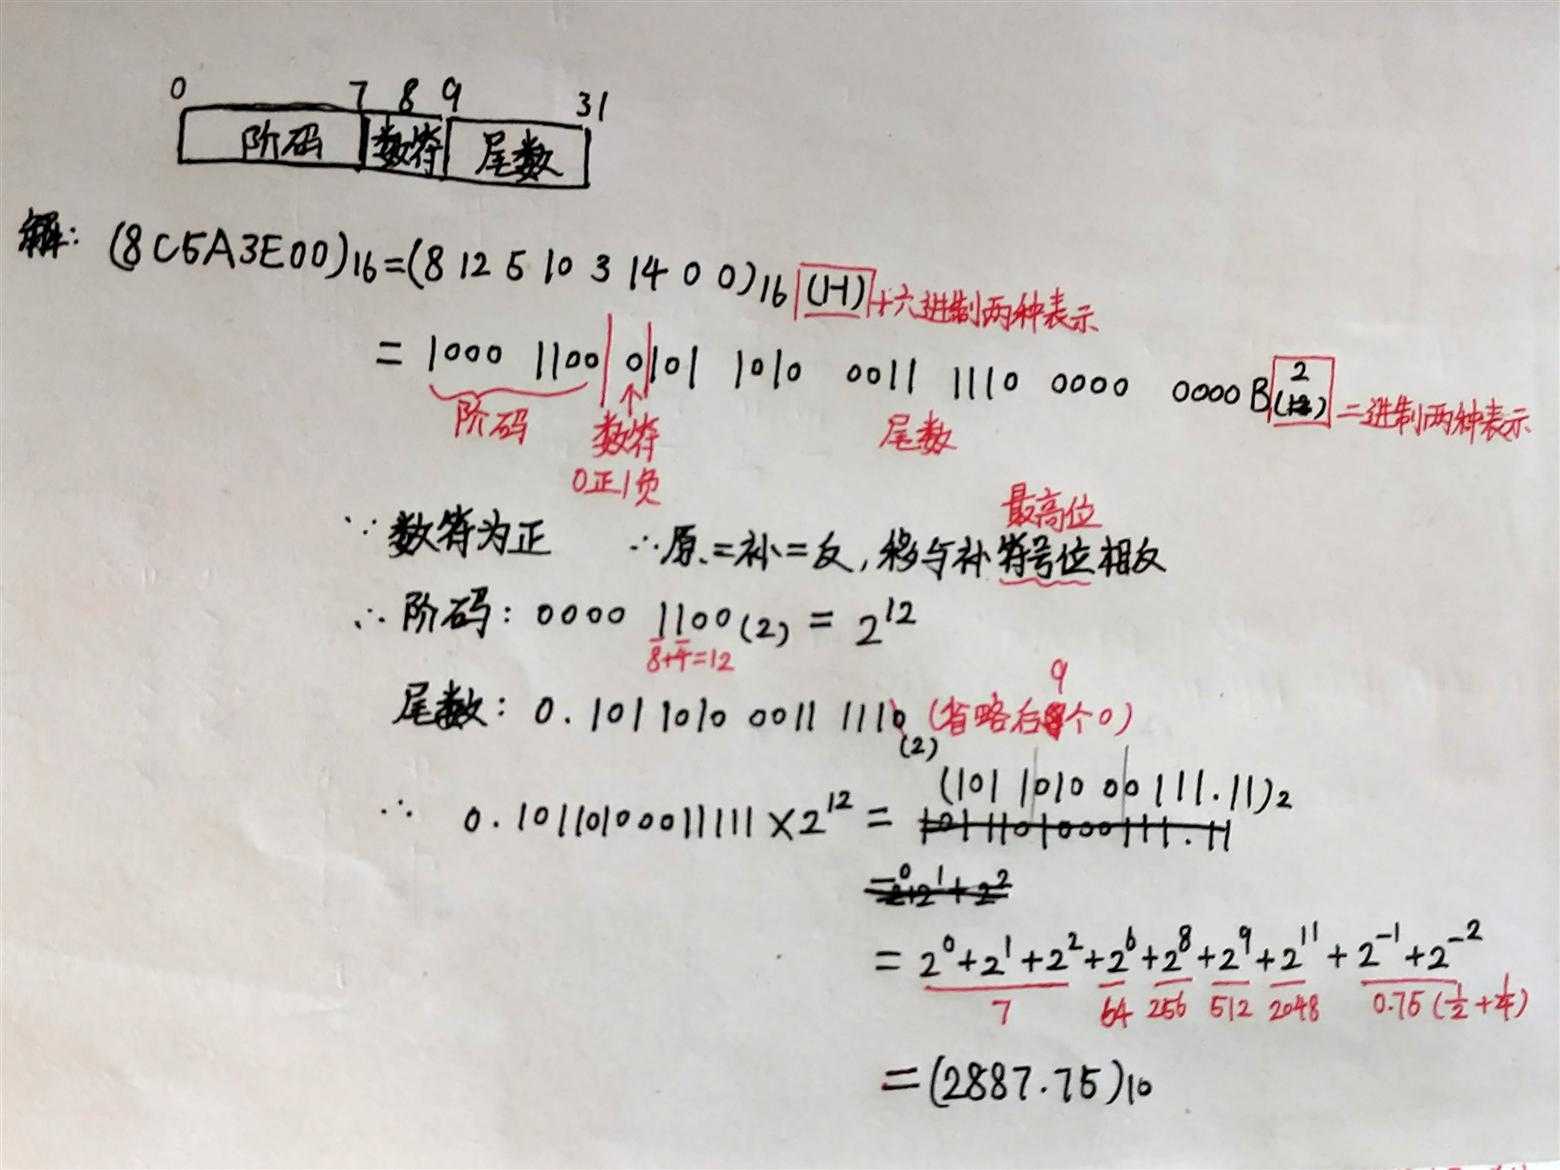 0 7 8 9 31
阶码 数符 尾数
解: (8C5A3E00)₁₆=(8 12 5 10 3 14 0 0)₁₆ (H) 十六进制两种表示
= 1000 1100 0101 1010 0011 1110 0000 0000B (2) 二进制两种表示
阶码 数符 尾数
0正1负
最高位
∵ 数符为正 ∴原=补=反,移与补符号位相反
∴ 阶码: 0000 1100(2) = 2¹²
8+4=12
尾数: 0.101 1010 0011 1110(2) (省略后9个0)
(101 1010 00111.11)₂
∴ 0.10110100011111×2¹² = 1011101000111.11
=2⁰+2¹+2²
= 2⁰+2¹+2²+2⁶+2⁸+2⁹+2¹¹+2⁻¹+2⁻²
7 64 256 512 2048 0.75 (½+¼)
=(2887.75)₁₀